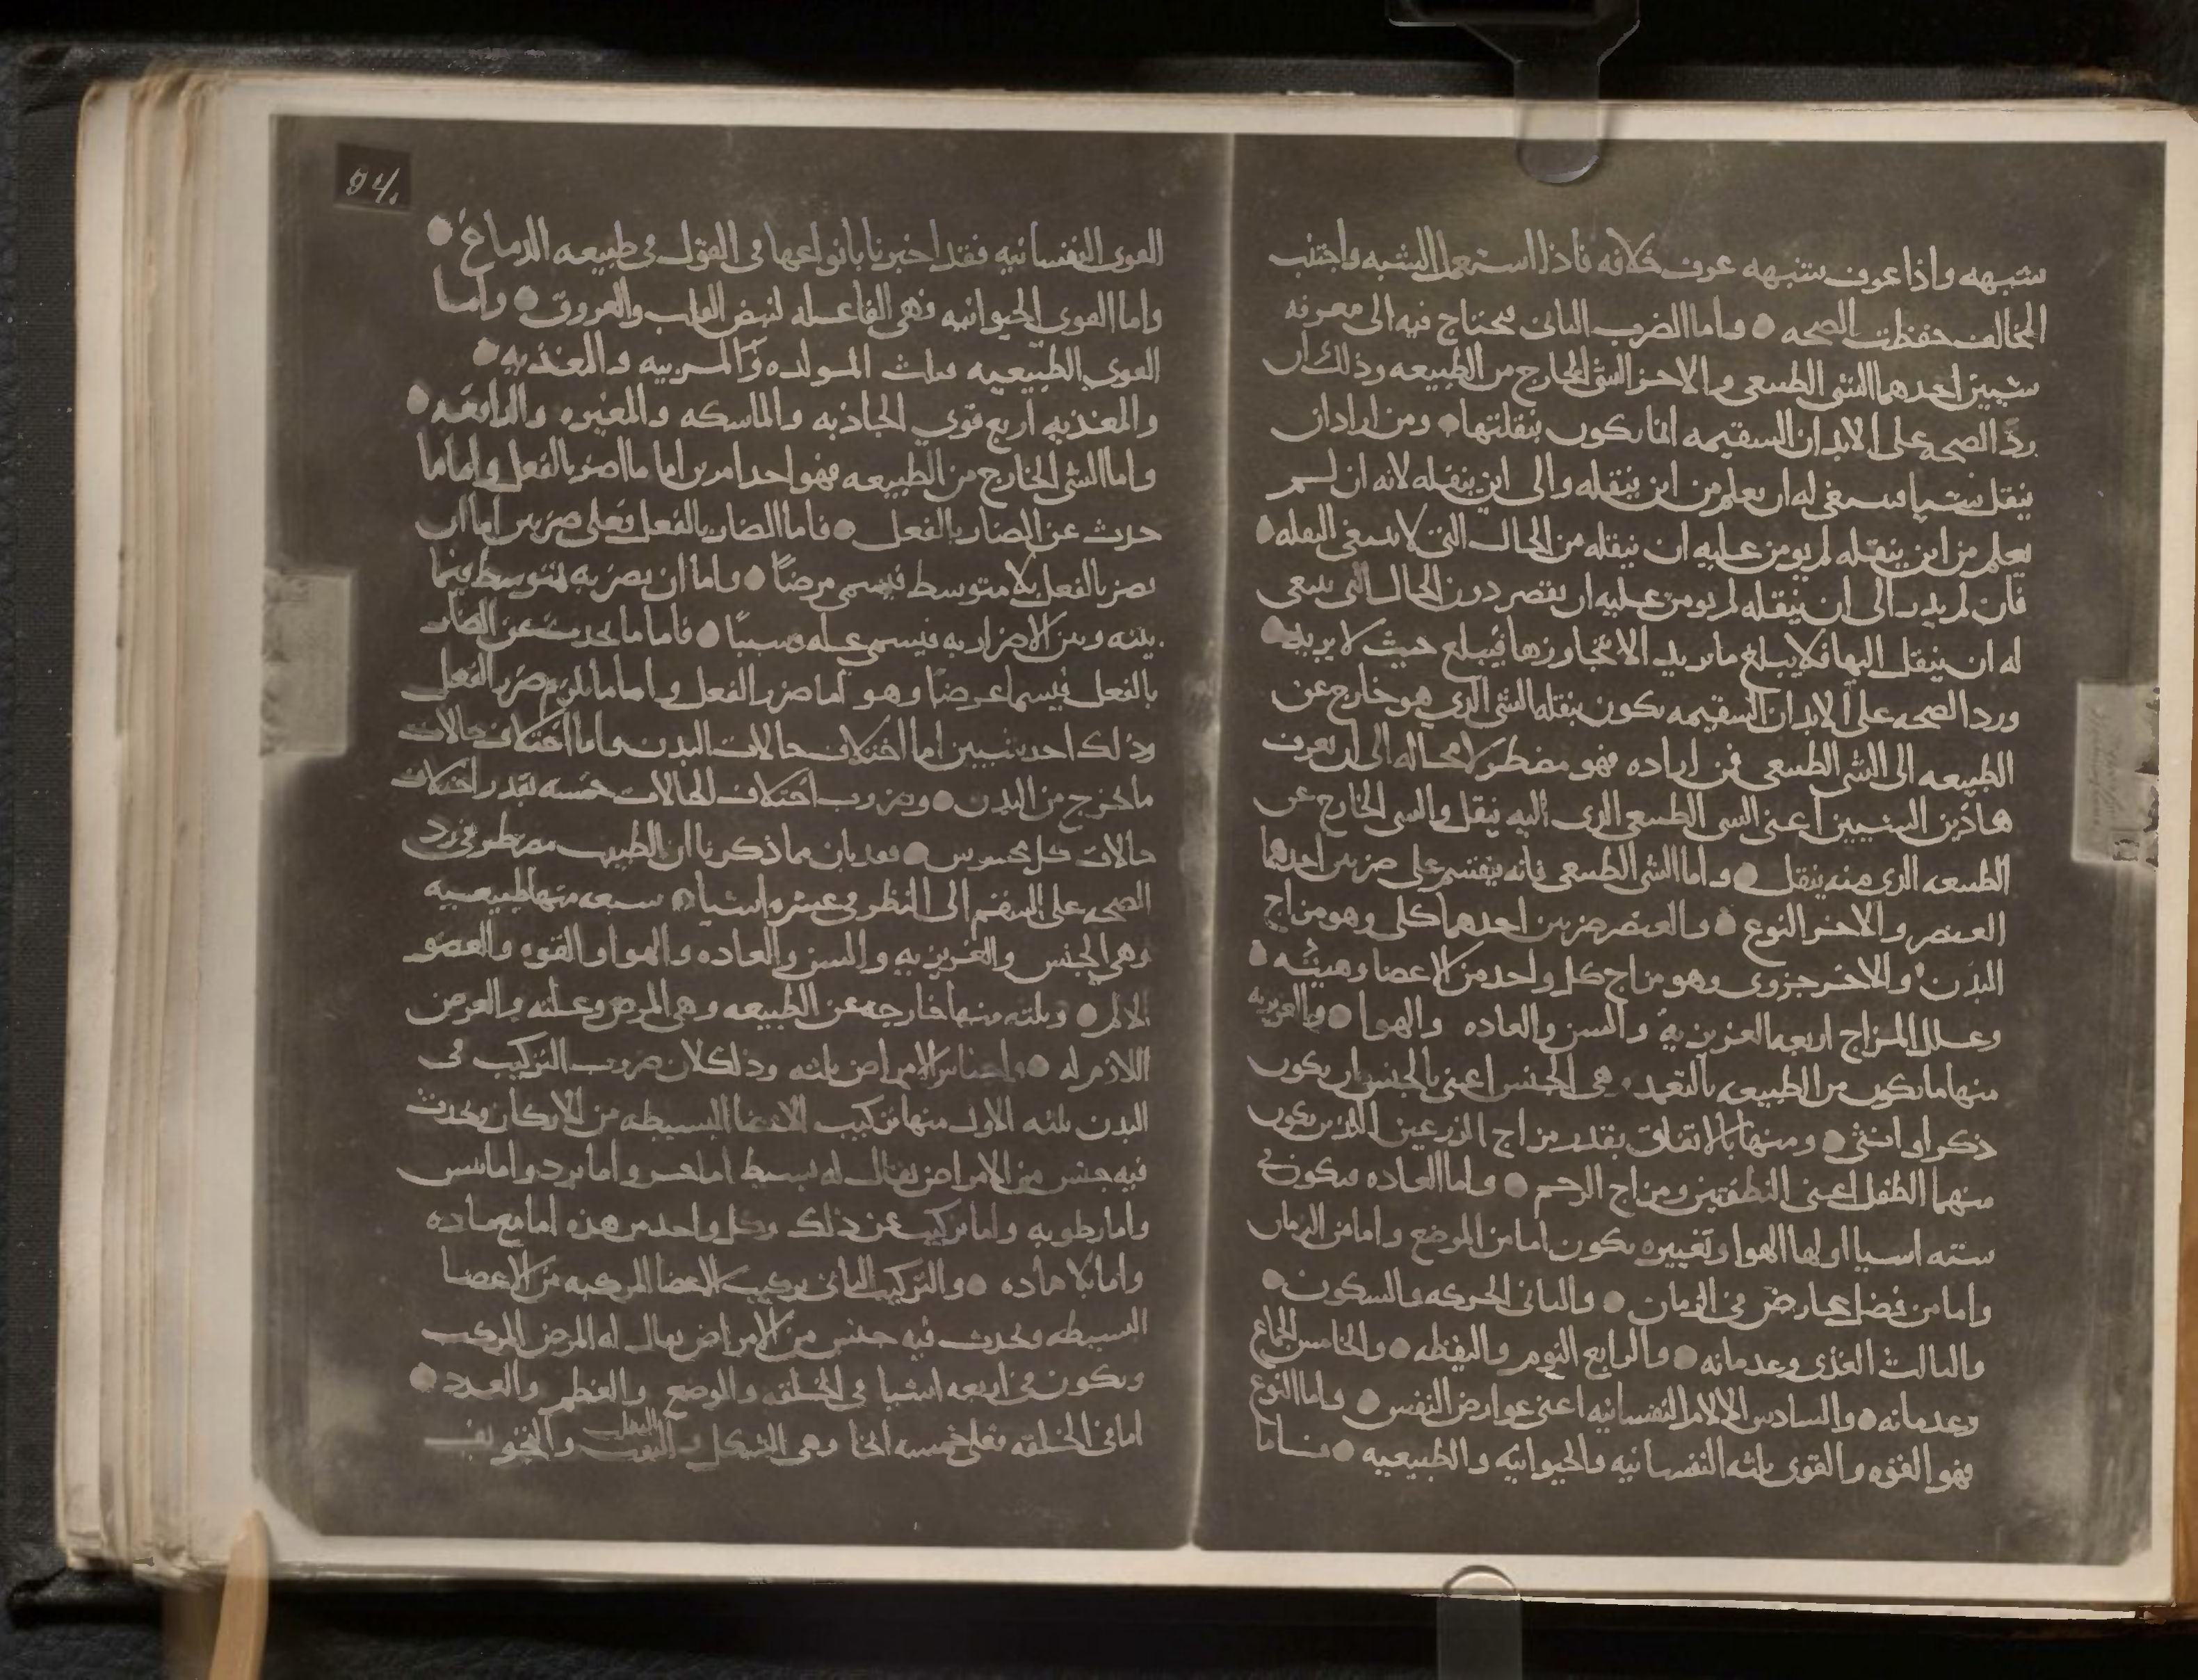 شبهه واذا عرف شبهه عرف خلافه فاذا استعمل الشبه واجتنب
المخالف حفظت الصحه ● واما الضرب الثانى فيحتاج فيه الى معرفه
شيين احدهما الشى الطبيعى والاخر الشى الخارج من الطبيعه وذلك ان
ردّ الصحه على الابدان السقيمه انما يكون بنقلتها ● ومن اراد ان
ينقل شيا فينبغى له ان يعلم من اين ينقله والى اين ينقله لانه ان لم
يعلم من اين ينقله لم يومن عليه ان ينقله من الحال التى لا ينبغى النقله ●
فان لم يدر الى اين ينقله لم يومن عليه ان يقصر دون الحال التى ينبغى
له ان ينقل اليها فلا يبلغ ما يريد او يتجاوزها فيبلغ حيث لا يريد ●
ورد الصحه على الابدان السقيمه يكون بنقله الشى الذي هو خارج عن
الطبيعه الى الشى الطبيعى فمن اراده فهو مضطر لا محاله الى ان يعرف
هاذين الشيين اعنى الشى الطبيعى الذى اليه ينقل والشى الخارج عن
الطبيعه الذى منه ينقل ● واما الشى الطبيعى فانه ينقسم على ضربين احدهما
العنصر والاخر النوع ● والعنصر ضربين احدهما كلى وهو مزاج
البدن والاخر جزوى وهو مزاج كل واحد من الاعضا وهيئته ●
وعلل المزاج اربعه الغريزيه والسن والعاده والهوا ● والغريزيه
منها ما يكون من الطبيعه بالتعمد وهى الجنس اعنى بالجنس ان يكون
ذكر او انثى ● ومنها بالاتفاق بقدر مزاج الزرعين اللذين يكون
منهما الطفل اعنى النطفتين ومزاج الرحم ● واما العاده فيكون فى
سته اسيا اولها الهوا وتغييره يكون اما من الموضع واما من الزمان
واما من فصل عارض فى الزمان ● والثانى الحركه والسكون ●
والثالث الغذى وعدمانه ● والرابع النوم واليقظه ● والخامس الجماع
وعدمانه ● والسادس الالام النفسانيه اعنى عوارض النفس ● واما النوع
فهو القوه والقوى ثلثه النفسانيه والحيوانيه والطبيعيه ● فاما
94.
القوى النفسانيه فقد اخبرنا بانواعها فى القول فى طبيعه الدماغ ●
واما القوي الحيوانيه فهى الفاعله لنبض القلب والعروق ● واما
القوي الطبيعيه ثلث المولده والمربيه والمغذيه ●
والمغذيه اربع قوي الجاذبه والماسكه والمغيره والدافعه ●
واما الشى الخارج من الطبيعه فهو احد امرين اما ما اضر بالفعل واما ما
حدث عن الضار بالفعل ● فاما الضار بالفعل فعلى ضربين اما ان
يضر بالفعل بلا متوسط فيسمى مرضًا ● واما ان يضر به بمتوسط فيما
بينه وبين الاضرار به فيسمى عله وسببًا ● فاما ما يحدث عن الضار
بالفعل فيسما عرضًا وهو اما ضرر الفعل واما ما يلزم ضرر الفعل
وذلك احد شيين اما اختلاف حالات البدن واما اختلاف حالات
ما يخرج من البدن ● وضروب اختلاف الحالات خمسه بقدر اختلاف
حالات كل محسوس ● فقد بان مما ذكرنا ان الطبيب مضطر فى رد
الصحه على السقم الى النظر فى عشره اشيا ● سبعه منها طبيعيه
وهى الجنس والغريزيه والسن والعاده والهوا والقوه والعضو
الالم ● وثلثه منها خارجه عن الطبيعه وهى المرض وعلته والعرض
اللازم له ● واجناس الامراض ثلثه وذلك لان ضروب التركيب فى
البدن ثلثه الاول منها تركيب الاعضا البسيطه من الاركان ويحدث
فيه جنس من الامراض يقال له بسيط اما حر واما برد واما يبس
واما رطوبه واما تركيب عن ذلك وكل واحد من هذه اما مع ماده
واما بلا ماده ● والتركيب الثانى تركيب الاعضا المركبه من الاعضا
البسيطه ويحدث فيه جنس من الامراض يقال له المرض المركب
ويكون فى اربعه اشيا فى الخلقه والوضع والعظم والعدد ●
اما فى الخلقه فعلى خمسه انحا وهى الشكل والثقب والتجويف